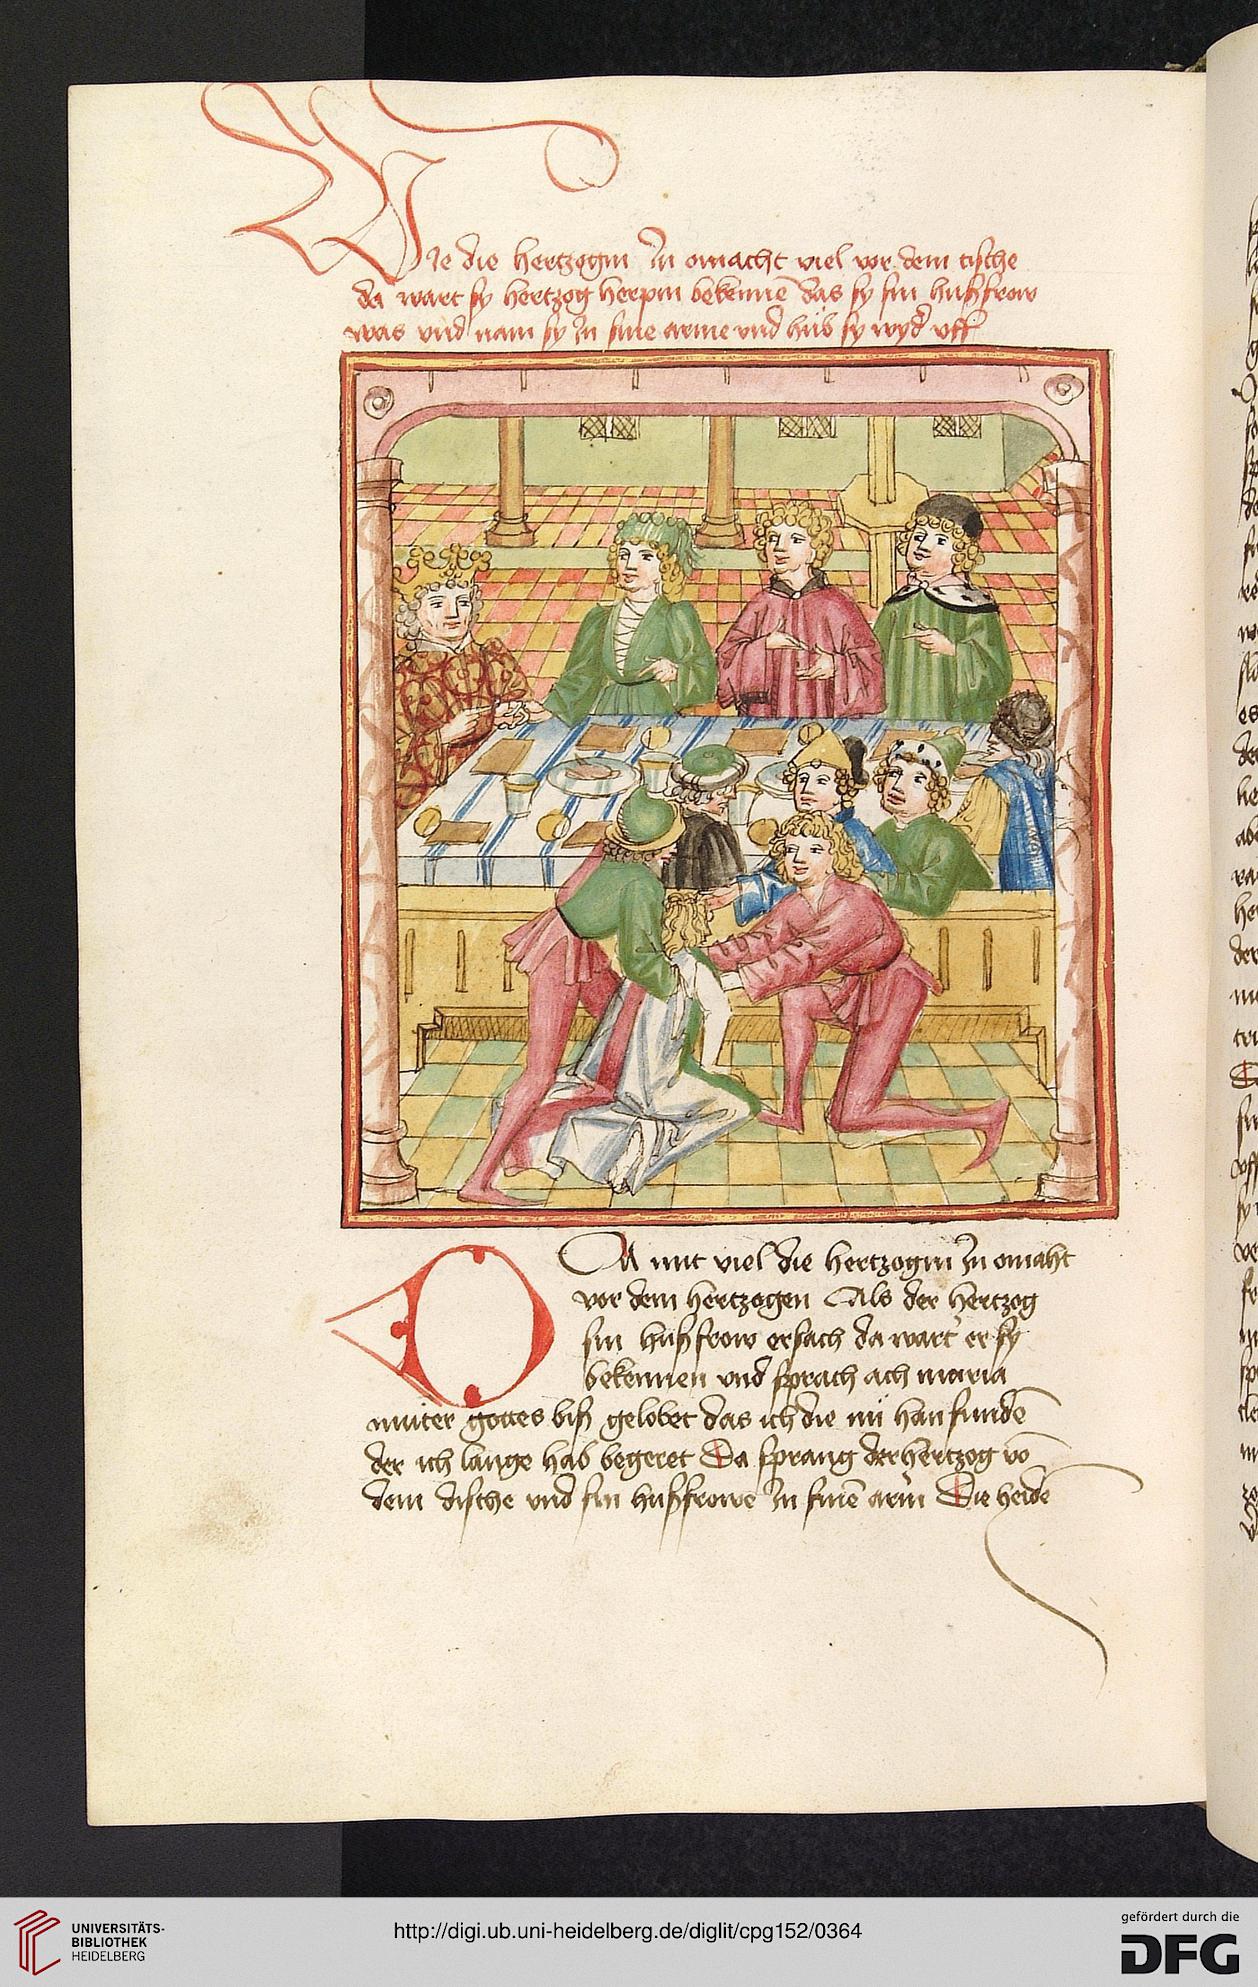 Wie die hertzogin In omacht viel vor dem tische
da wart sy hertzog herpin bekenne das sy sin hußfrow
was vnd nam sy In sine arme vnd hub sy wyd vff
DA mit viel die hertzogin In omaht
vor dem hertzogen Als der hertzog
sin hußfrow ersach da wart er sy
bekennen vnd sprach ach maria
muter gottes biß gelobet das ich die nü han funde
der ich lange hab begeret Da sprang der hertzog vo
dem dische vnd sin hußfrowe In sine arm Die heide
UNIVERSITÄTS-
BIBLIOTHEK
HEIDELBERG
http://digi.ub.uni-heidelberg.de/diglit/cpg152/0364
gefördert durch die
DFG